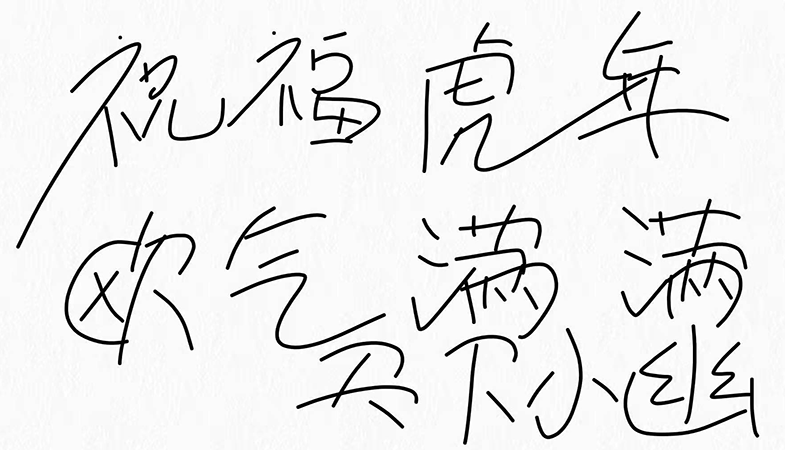 祝福虎年
欧气满满
天下小幽